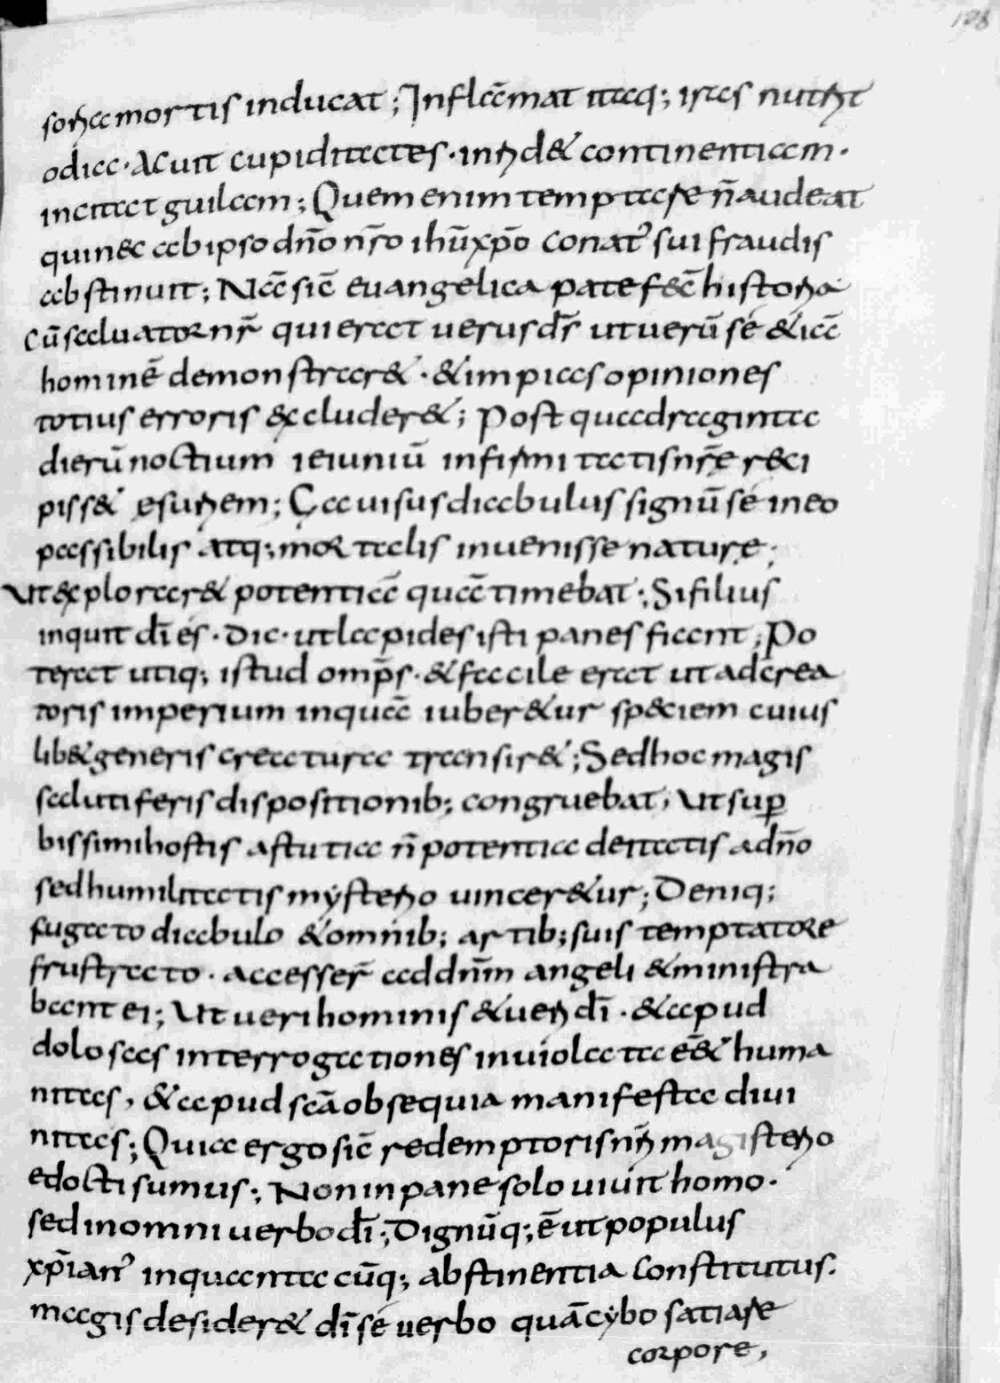 198
soria mortis inducat; Inflāmat itaq; iras nutrit
odia. Acuit cupiditates. inrid& continentiam.
incitat guilam; Quem enim temptare n̄ audeat
qui nec ab ipso dn̄o nr̄o ih̄u xp̄o conat' sui fraudis
abstinuit; Nā sic̄ euangelica patefec̄ historia
cū saluator nr̄ qui erat uerus d̄s ut uerū se &iā
hominē demonstrar&. & impias opiniones
totius erroris excluder&; Post quadraginta
dierū noctium ieiuniū infirmitatis nr̄ę reci
piss& ęsuriem; Gauisus diabulus signū se in eo
passibilis atq; mortalis inuenisse naturę;
Ut explorar& potentiā quā timebat; Si filius
inquit d̄i es. dic. ut lapides isti panes fiant; Po
terat utiq; istud omp̄s. & facile erat ut ad crea
toris imperium in quā iuber&ur speciem cuius
lib& generis creatura transir&; Sed hoc magis
salutiferis dispositionib; congruebat, Ut sup̱
bissimi hostis astutia n̄ potentia deitatis a dn̄o
sed humilitatis mysterio uincer&ur; Deniq;
fugato diabulo & omnib; artib; suis temptatore
frustrato. accesser̄ ad dn̄m angeli & ministra
bant ei; Ut ueri hominis & ueri d̄i. & apud
dolosas interrogationes inuiolata e&̄ huma
nitas, & apud sc̄a obsequia manifesta diui
nitas; Quia ergo sic̄ redemptoris nr̄i magisterio
edocti sumus; Non in pane solo uiuit homo.
sed in omni uerbo d̄i; Dignūq; ē ut populus
xp̄ian' in quantacūq; abstinentia constitutus.
magis desider& d̄i se uerbo quā cybo satiare
corpore,